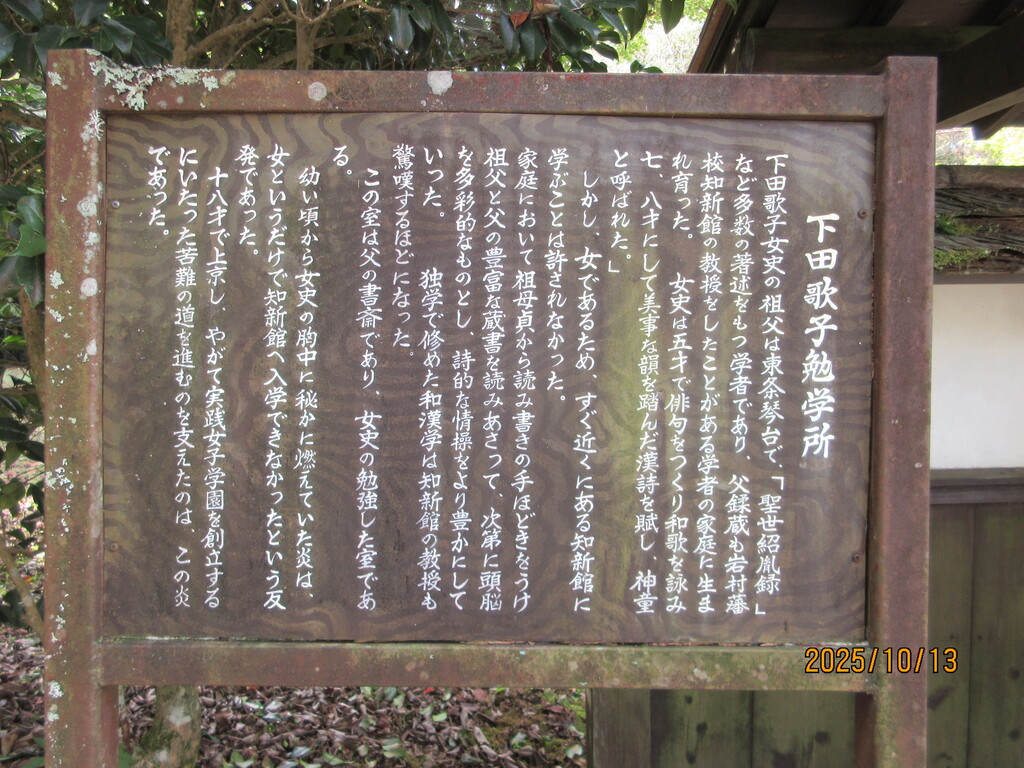 下田歌子勉学所
下田歌子女史の祖父は東条琴台で、「聖世紹胤録」
など多数の著述をもつ学者であり、父鍒蔵も岩村藩
校知新館の教授をしたことがある学者の家庭に生ま
れ育った。　女史は五才で俳句をつくり和歌を詠み
七、八才にして美事な韻を踏んだ漢詩を賦し、神童
と呼ばれた。」
しかし、女であるため、すぐ近くにある知新館に
学ぶことは許されなかった。
家庭において祖母貞から読み書きの手ほどきをうけ
祖父と父の豊富な蔵書を読みあさって、次第に頭脳
を多彩的なものとし、詩的な情操をより豊かにして
いった。　独学で修めた和漢学は知新館の教授も
驚嘆するほどになった。
この室は父の書斎であり、女史の勉強した室であ
る。
幼い頃から女史の胸中に秘かに燃えていた炎は、
女というだけで知新館へ入学できなかったという反
発であった。
十八才で上京し、やがて実践女子学園を創立する
にいたった苦難の道を進むのを支えたのは、この炎
であった。
2025/10/13